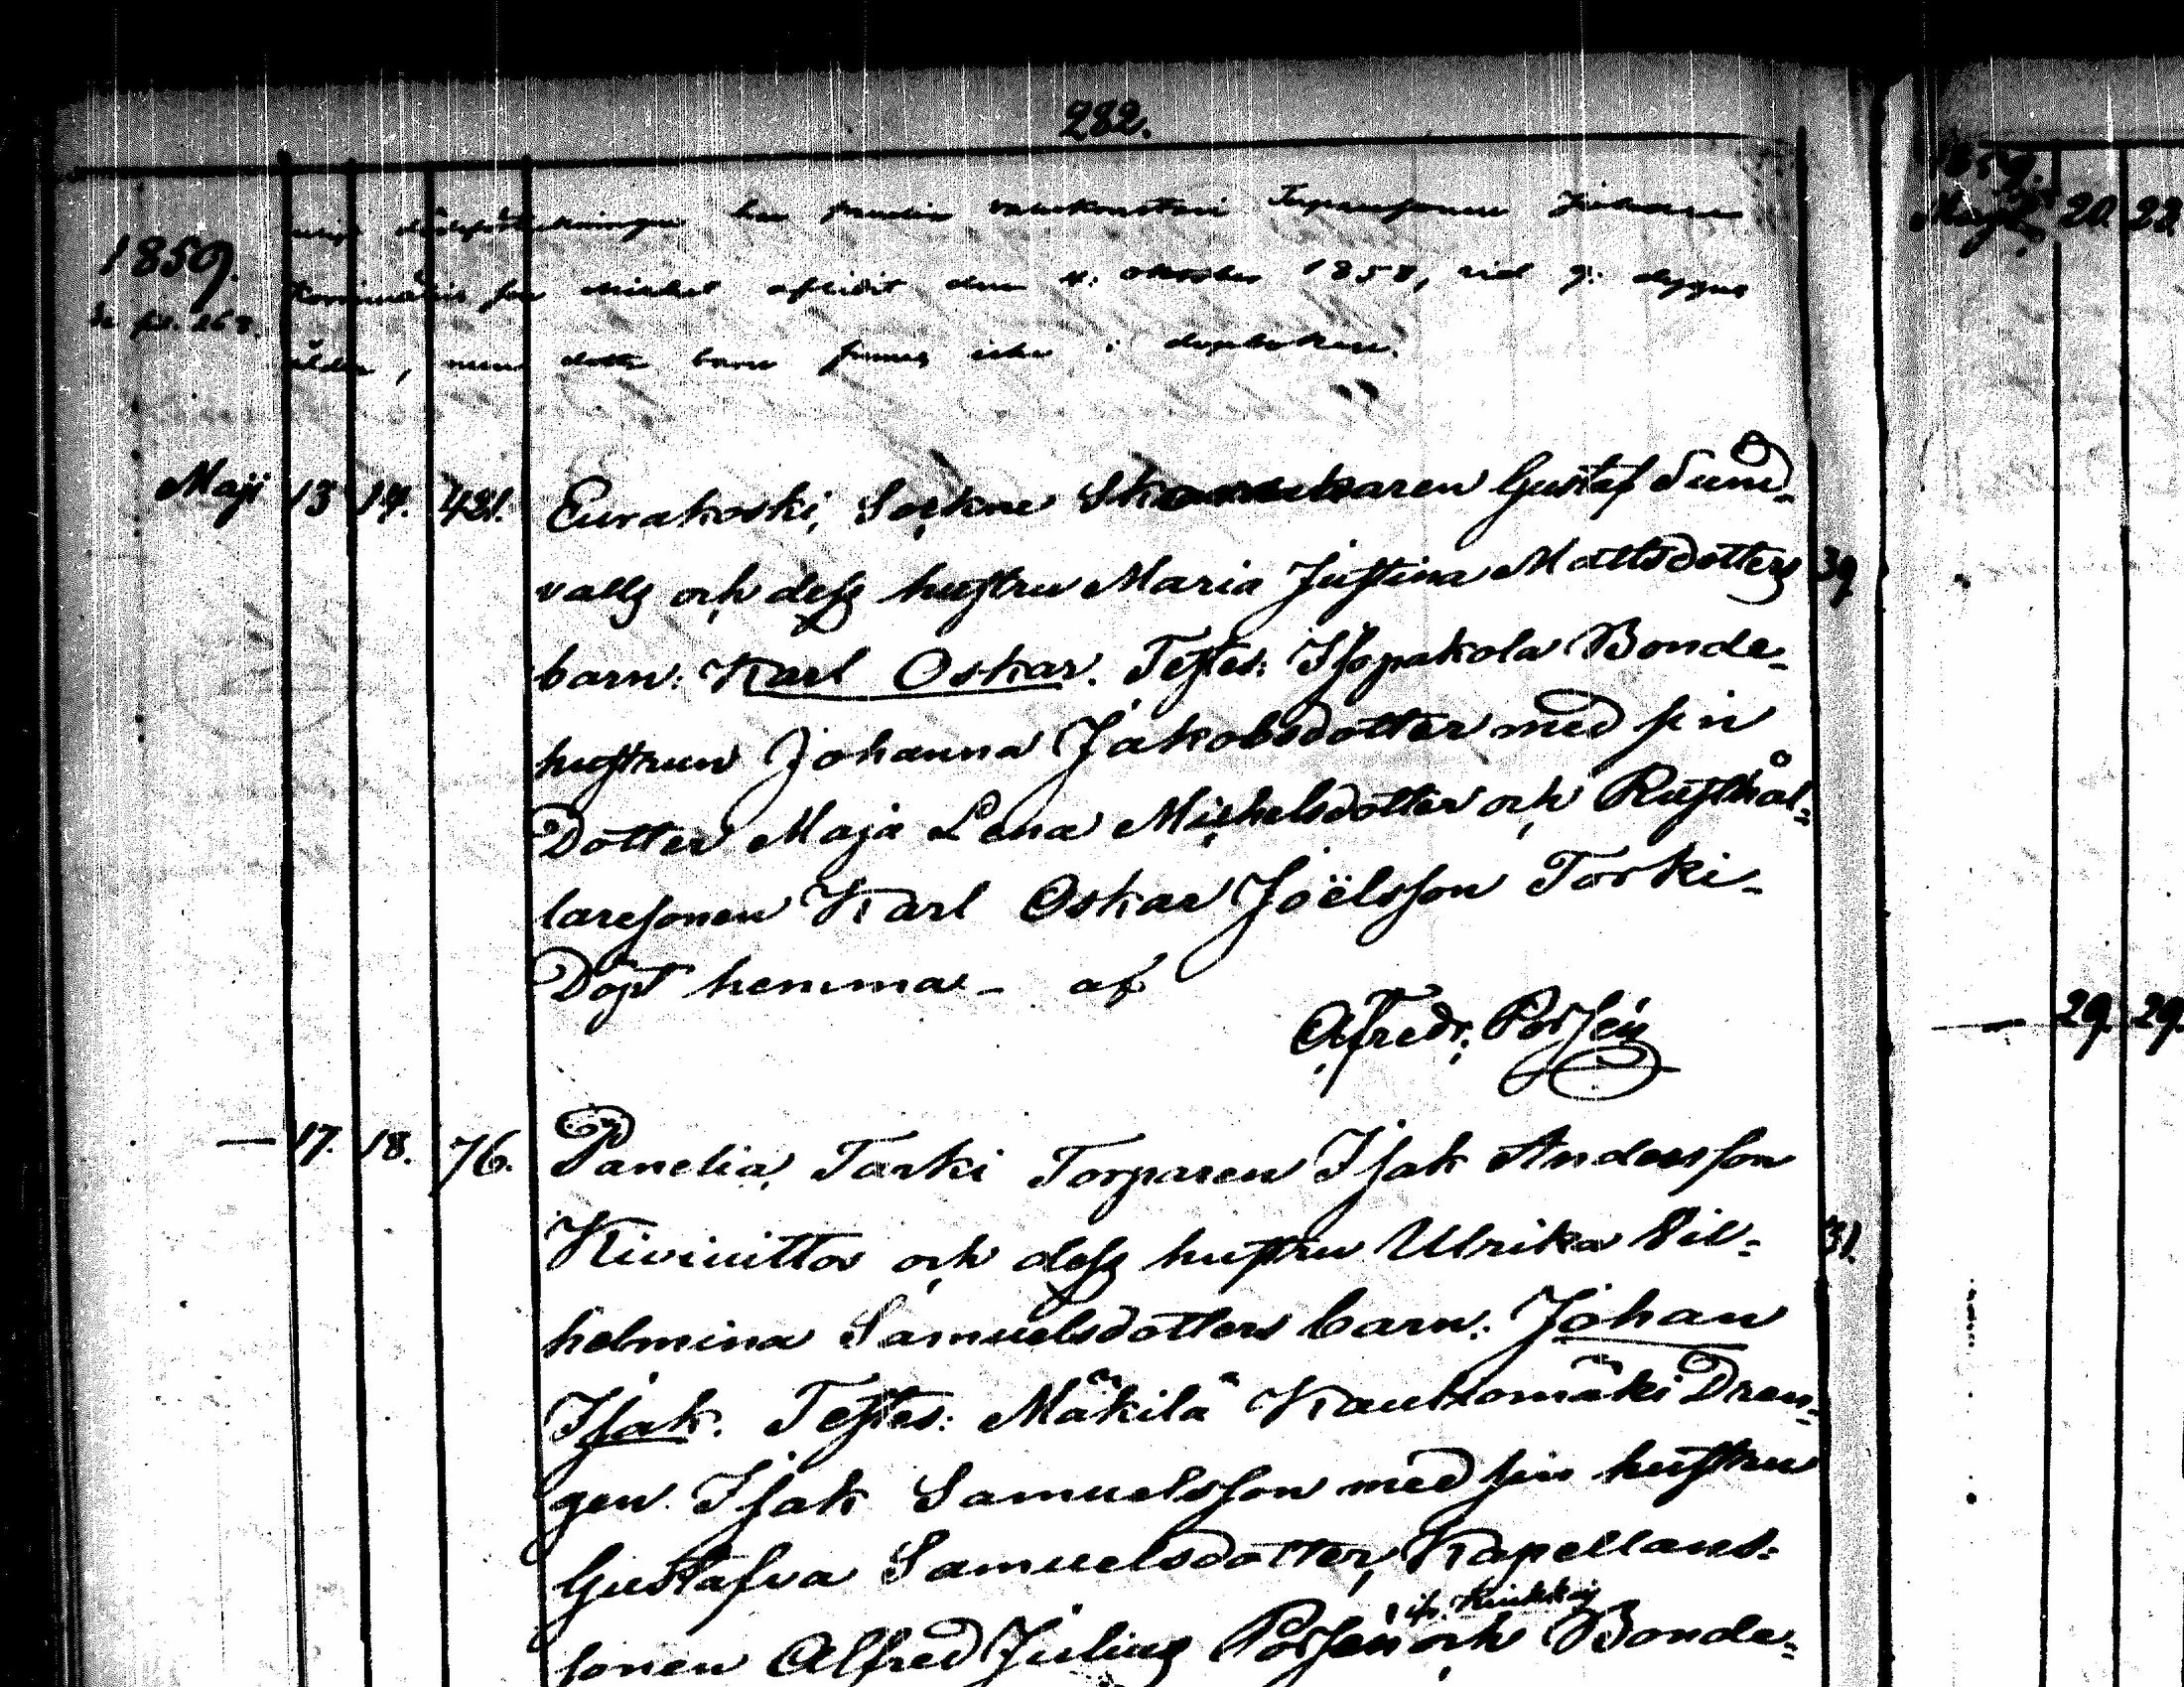 282.
1859.
enligt dödsförteckningen har Panelia
Michel aflidit den 4: oktober 1858, vid 9: dygns
ålder, men detta barn finnes icke i dopboken.
Maji 13 14. 421. Eurakoski, Sockne Skomakaren Gustaf Sund-
valls och dess hustru Maria Justina Mattsdotters 39
barn: Karl Oskar. Testes: Isopakola Bonde-
hustrun Johanna Jakobsdotter med sin
Dotter Maja Lena Michelsdotter och Rusthål-
laresonen Karl Oskar Joëlsson Torki-
Döpt hemma - af
A. Fredr. Polsén
— 17. 18. 76. Panelia, Tarki Torparen Isak Andersson
Kiviniitto och dess hustru Ulrika Vil- 31.
helmina Samuelsdotters barn: Johan
Isak. Testes: Mäkilä Kauhomäki Drän-
gen Isak Samuelsson med sin hustru
Gustafva Samuelsdotter, Kapellans-
sonen Alfred Julius Polsén och Bonde-
1859.
Maji 20. 22
— 29. 29.